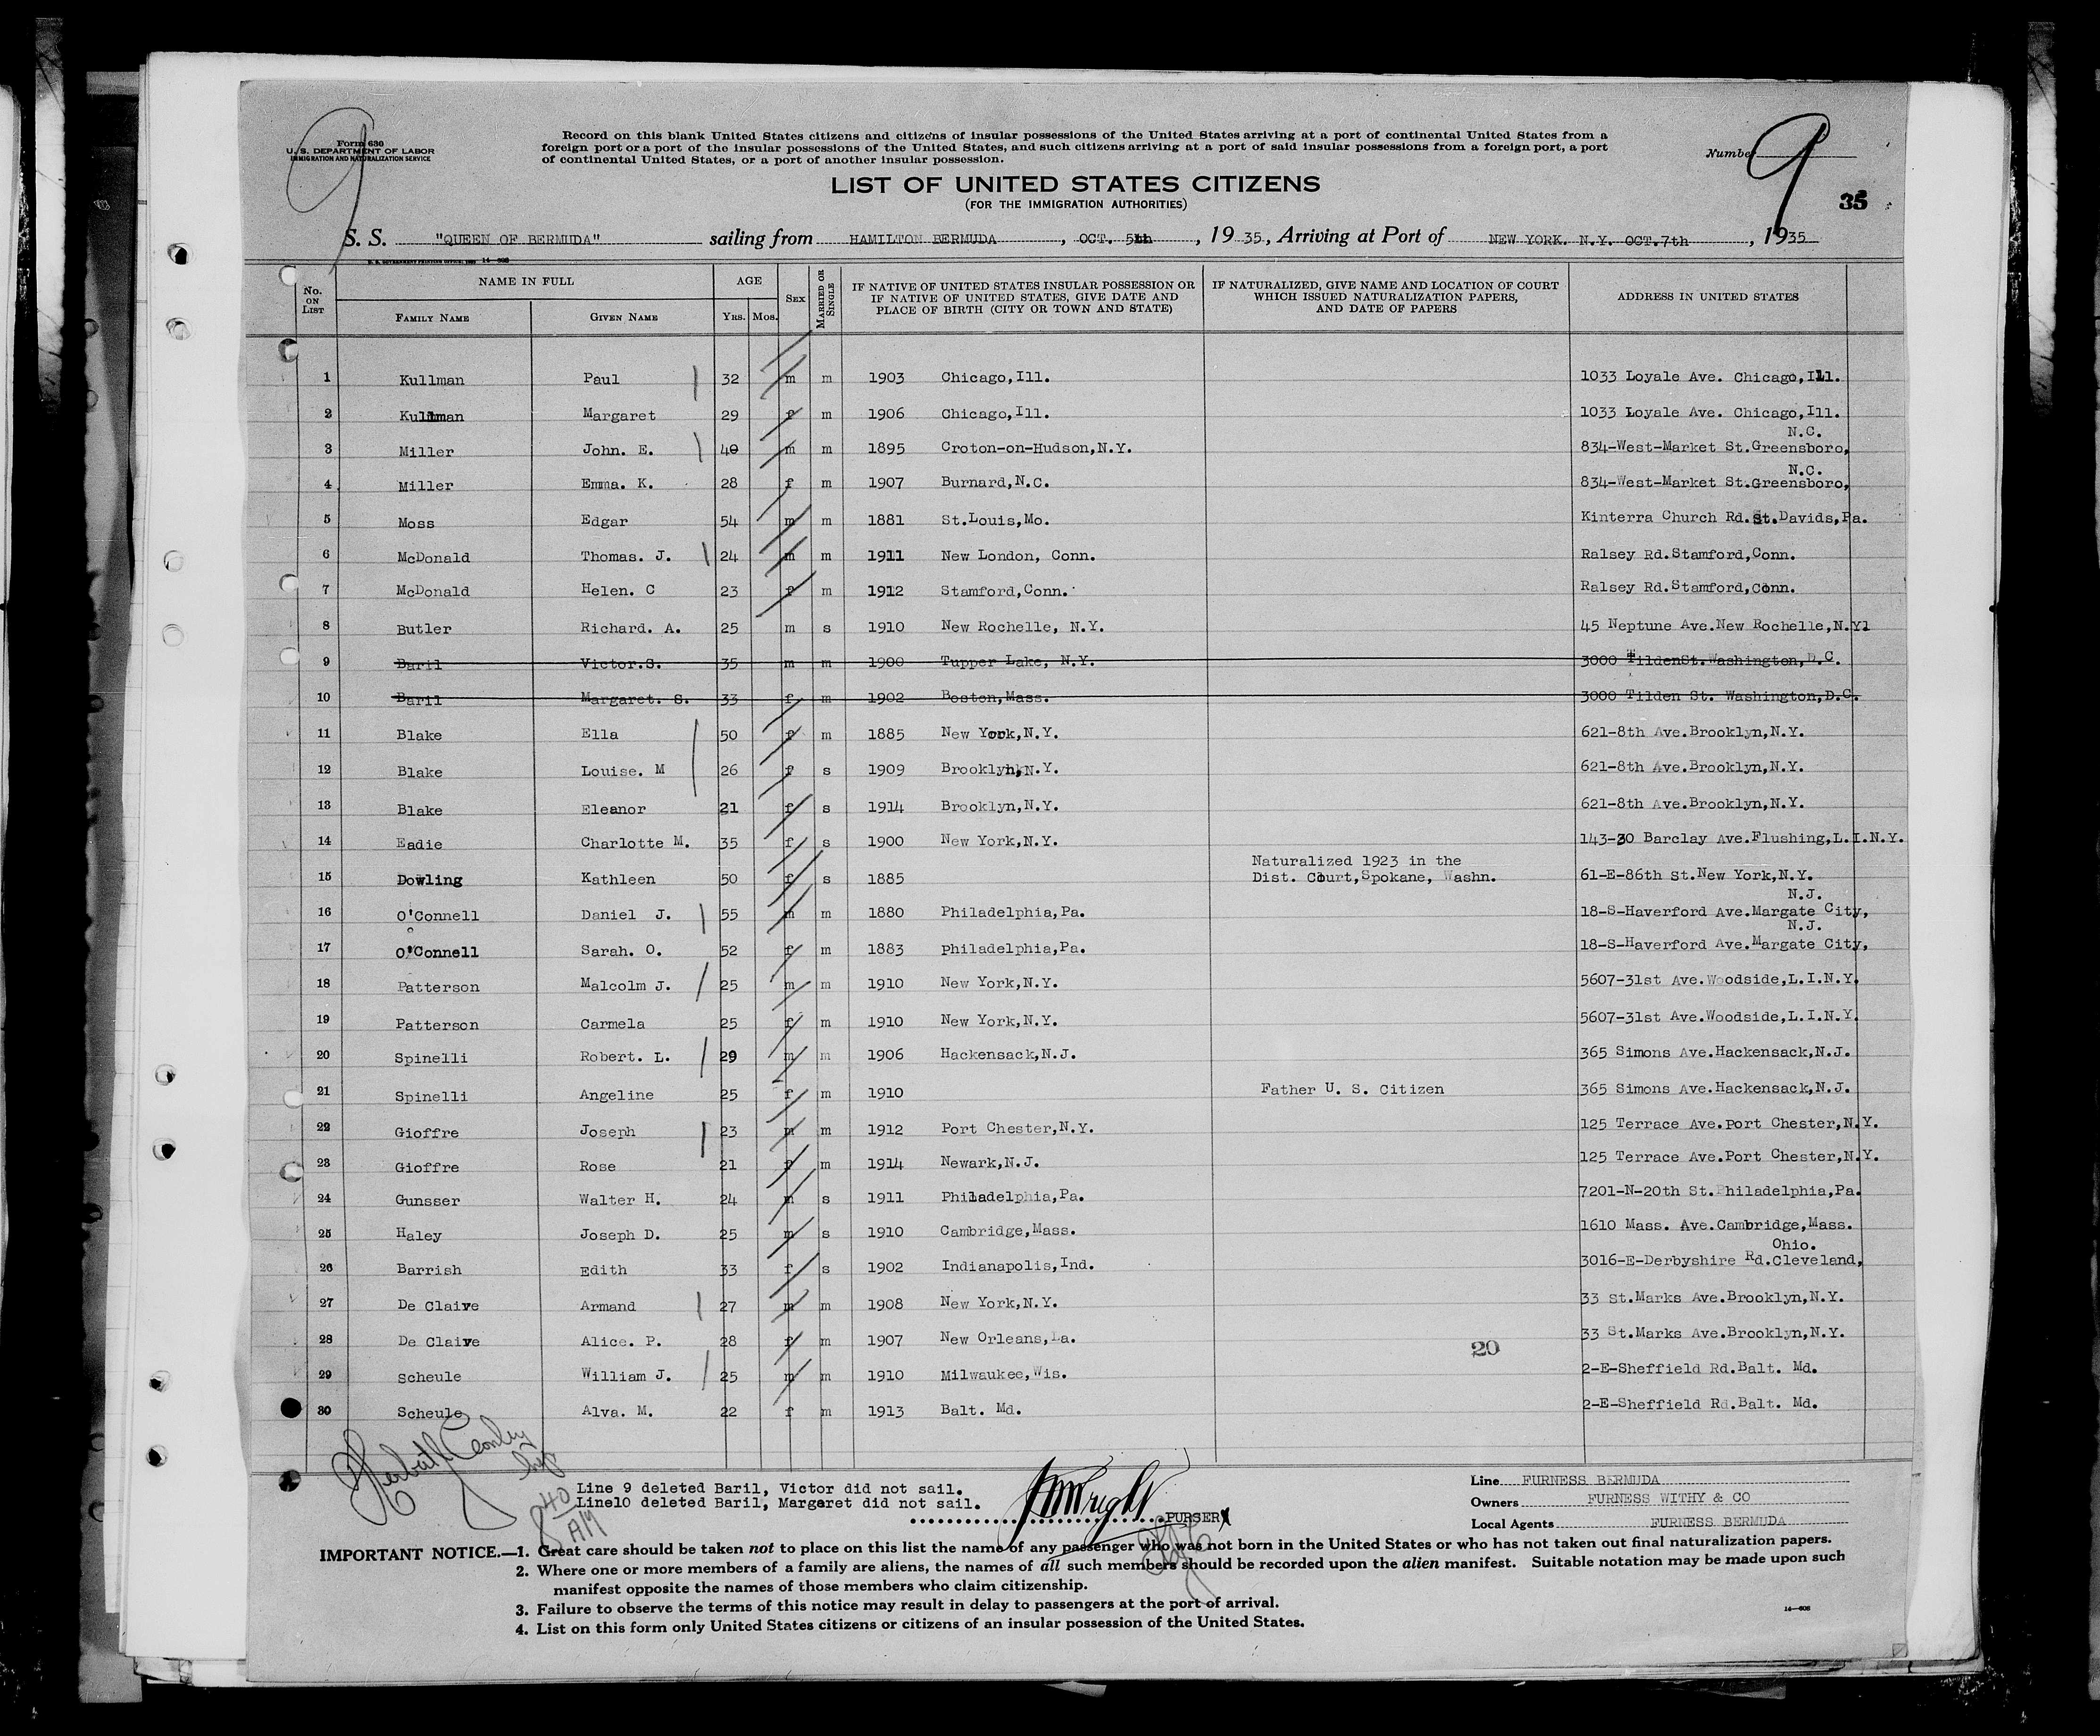 Form 630
U. S. DEPARTMENT OF LABOR
IMMIGRATION AND NATURALIZATION SERVICE
Record on this blank United States citizens and citizens of insular possessions of the United States arriving at a port of continental United States from a
foreign port or a port of the insular possessions of the United States, and such citizens arriving at a port of said insular possessions from a foreign port, a port
of continental United States, or a port of another insular possession.
Number 9
9
35
LIST OF UNITED STATES CITIZENS
(FOR THE IMMIGRATION AUTHORITIES)
S. S. "QUEEN OF BERMUDA" sailing from HAMILTON BERMUDA, OCT. 5th, 19 35, Arriving at Port of NEW YORK. N.Y. OCT.7th, 1935
No. ON LIST NAME IN FULL FAMILY NAME GIVEN NAME AGE YRS. MOS. SEX MARRIED OR SINGLE IF NATIVE OF UNITED STATES INSULAR POSSESSION OR IF NATIVE OF UNITED STATES, GIVE DATE AND PLACE OF BIRTH (CITY OR TOWN AND STATE) IF NATURALIZED, GIVE NAME AND LOCATION OF COURT WHICH ISSUED NATURALIZATION PAPERS, AND DATE OF PAPERS ADDRESS IN UNITED STATES
1 Kullman Paul 32 m m 1903 Chicago,Ill. 1033 Loyale Ave. Chicago,Ill.
2 Kullman Margaret 29 f m 1906 Chicago,Ill. 1033 Loyale Ave. Chicago,Ill.
N.C.
3 Miller John. E. 40 m m 1895 Croton-on-Hudson,N.Y. 834-West-Market St.Greensboro,
N.C.
4 Miller Emma. K. 28 f m 1907 Burnard,N.C. 834-West-Market St.Greensboro,
5 Moss Edgar 54 m m 1881 St.Louis,Mo. Kinterra Church Rd.St.Davids,Pa.
6 McDonald Thomas. J. 24 m m 1911 New London, Conn. Ralsey Rd.Stamford,Conn.
7 McDonald Helen. C 23 f m 1912 Stamford,Conn. Ralsey Rd.Stamford,Conn.
8 Butler Richard. A. 25 m s 1910 New Rochelle, N.Y. 45 Neptune Ave.New Rochelle,N.Yl
9 Baril Victor.S. 35 m m 1900 Tupper Lake, N.Y. 3000 TildenSt.Washington,D.C.
10 Baril Margaret. S. 33 f m 1902 Boston,Mass. 3000 Tilden St. Washington,D.C.
11 Blake Ella 50 f m 1885 New York,N.Y. 621-8th Ave.Brooklyn,N.Y.
12 Blake Louise. M 26 f s 1909 Brooklyn,N.Y. 621-8th Ave.Brooklyn,N.Y.
13 Blake Eleanor 21 f s 1914 Brooklyn,N.Y. 621-8th Ave.Brooklyn,N.Y.
14 Eadie Charlotte M. 35 f s 1900 New York,N.Y. 143-30 Barclay Ave.Flushing,L.I.N.Y.
Naturalized 1923 in the
15 Dowling Kathleen 50 f s 1885 Dist. Court,Spokane, Washn. 61-E-86th St.New York,N.Y.
N.J.
16 O'Connell Daniel J. 55 m m 1880 Philadelphia,Pa. 18-S-Haverford Ave.Margate City,
N.J.
17 O'Connell Sarah. O. 52 f m 1883 philadelphia,Pa. 18-S-Haverford Ave.Margate City,
18 Patterson Malcolm J. 25 m m 1910 New York,N.Y. 5607-31st Ave.Woodside,L.I.N.Y.
19 Patterson Carmela 25 f m 1910 New York,N.Y. 5607-31st Ave.Woodside,L.I.N.Y.
20 Spinelli Robert. L. 29 m m 1906 Hackensack,N.J. 365 Simons Ave.Hackensack,N.J.
21 Spinelli Angeline 25 f m 1910 Father U. S. Citizen 365 Simons Ave.Hackensack,N.J.
22 Gioffre Joseph 23 m m 1912 Port Chester,N.Y. 125 Terrace Ave.Port Chester,N.Y.
23 Gioffre Rose 21 f m 1914 Newark,N.J. 125 Terrace Ave.Port Chester,N.Y.
24 Gunsser Walter H. 24 m s 1911 Philadelphia,Pa. 7201-N-20th St.Philadelphia,Pa.
25 Haley Joseph D. 25 m s 1910 Cambridge,Mass. 1610 Mass. Ave.Cambridge,Mass.
Ohio.
26 Barrish Edith 33 f s 1902 Indianapolis,Ind. 3016-E-Derbyshire Rd.Cleveland,
27 De Claive Armand 27 m m 1908 New York,N.Y. 33 St.Marks Ave.Brooklyn,N.Y.
28 De Claive Alice. P. 28 f m 1907 New Orleans,La. 33 St.Marks Ave.Brooklyn,N.Y.
20
29 Scheule William J. 25 m m 1910 Milwaukee,Wis. 2-E-Sheffield Rd.Balt. Md.
30 Scheule Alva. M. 22 f m 1913 Balt. Md. 2-E-Sheffield Rd.Balt. Md.
8 40 AM
Line 9 deleted Baril, Victor did not sail.
Line10 deleted Baril, Margaret did not sail.
Wright
PURSER
Line FURNESS BERMUDA
Owners FURNESS WITHY & CO
Local Agents FURNESS BERMUDA
IMPORTANT NOTICE.—1. Great care should be taken not to place on this list the name of any passenger who was not born in the United States or who has not taken out final naturalization papers.
2. Where one or more members of a family are aliens, the names of all such members should be recorded upon the alien manifest. Suitable notation may be made upon such
manifest opposite the names of those members who claim citizenship.
3. Failure to observe the terms of this notice may result in delay to passengers at the port of arrival.
4. List on this form only United States citizens or citizens of an insular possession of the United States.
14—608